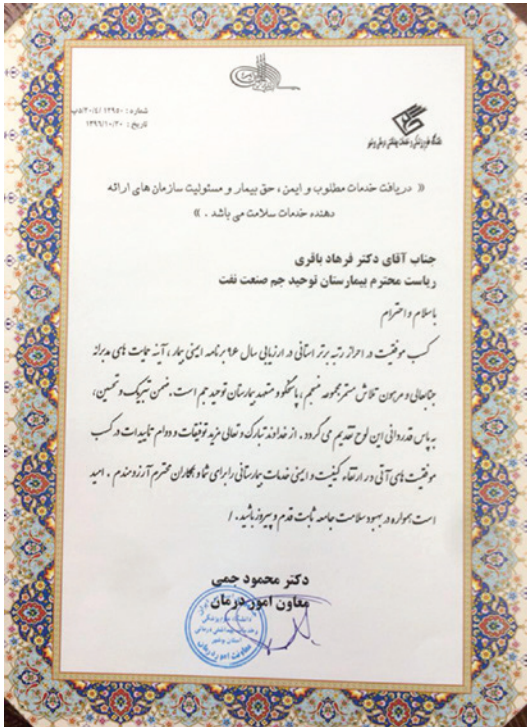 شماره : ۱۳۹۵۰/۴/۲۰/۵/پ
تاریخ : ۱۳۹۶/۱۰/۲۰
دانشگاه علوم پزشکی و خدمات بهداشتی درمانی بوشهر
« دریافت خدمات مطلوب و ایمن ، حق بیمار و مسئولیت سازمان های ارائه
دهنده خدمات سلامت می باشد . »
جناب آقای دکتر فرهاد باقری
ریاست محترم بیمارستان توحید جم صنعت نفت
باسلام و احترام
کسب موفقیت در احراز رتبه برتر استانی در ارزیابی سال ۹۶ برنامه ایمنی بیمار ، آئینه حمایت های مدبرانه
جنابعالی و مرهون تلاش مستمر مجموعه منسجم ، پاسخگو و متعهد بیمارستان توحید جم است. ضمن تبریک و تحسین ،
به پاس قدردانی این لوح تقدیم می گردد . از خداوند تبارک و تعالی مزید توفیقات و دوام تاییدات در کسب
موفقیت های آتی در ارتقاء کیفیت و ایمنی خدمات بیمارستانی را برای شما و همکاران محترم آرزومندم . امید
است همواره در بهبود سلامت جامعه ثابت قدم و پیروز باشید . /
دکتر محمود جمی
معاون امور درمان
دانشگاه علوم پزشکی
و خدمات بهداشتی درمانی
استان بوشهر
معاونت امور درمان